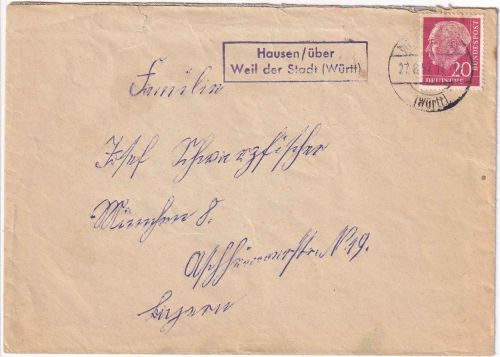 Hausen/über
Weil der Stadt (Württ)
27.
(Württ)
20
DEUTSCHE
BUNDESPOST
Familie
Josef Schwarzfischer
München 8.
N. 19.
Bayern